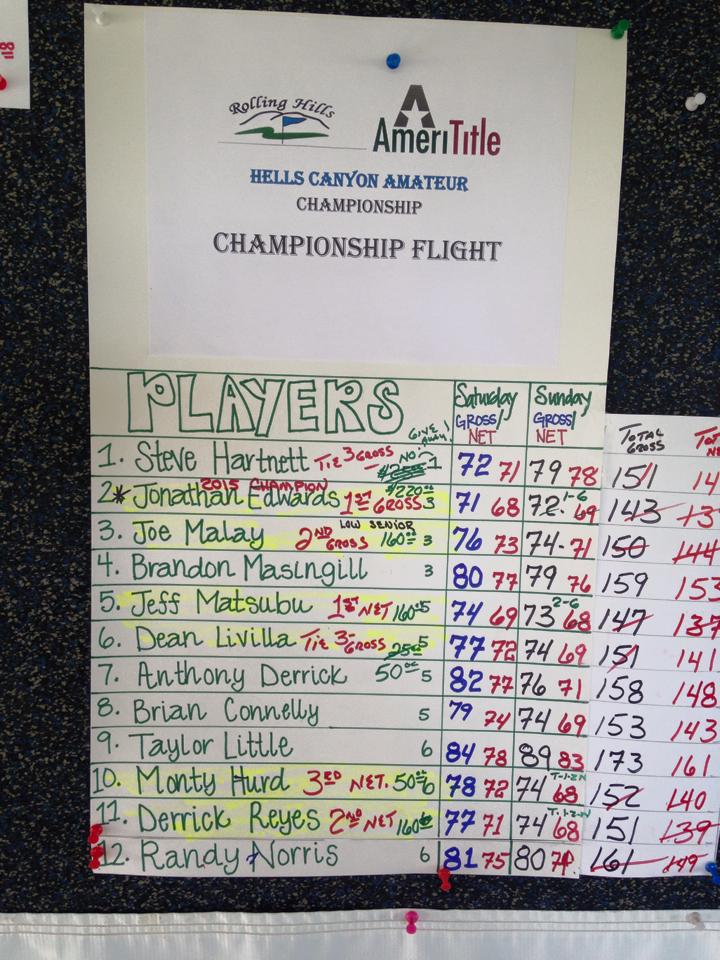 Rolling Hills
AmeriTitle
HELLS CANYON AMATEUR
CHAMPIONSHIP
CHAMPIONSHIP FLIGHT
PLAYERS GIVE AWAY! Saturday GROSS/ NET Sunday GROSS/ NET TOTAL GROSS
1. Steve Hartnett TIE 3 GROSS NO? 1 72 71 79 78 151
2* Jonathan Edwards 2015 CHAMPION 1ST GROSS $220.00 3 71 68 72 1-6 69 143
3. Joe Malay LOW SENIOR 2ND GROSS 160.00 3 76 73 74 71 150 144
4. Brandon Masingill 3 80 77 79 76 159 153
5. Jeff Matsubu 1ST NET 160.00 5 74 69 73 2-6 68 147 137
6. Dean Livilla TIE 3-GROSS 25.00 5 77 72 74 69 151 141
7. Anthony Derrick 50.00 5 82 77 76 71 158 148
8. Brian Connelly 5 79 74 74 69 153 143
9. Taylor Little 6 84 78 89 83 173 161
10. Monty Hurd 3RD NET. 50.00 6 78 72 74 68 152 140
11. Derrick Reyes 2ND NET 160 6 77 71 74 68 151 139
12. Randy Norris 6 81 75 80 74 161 149